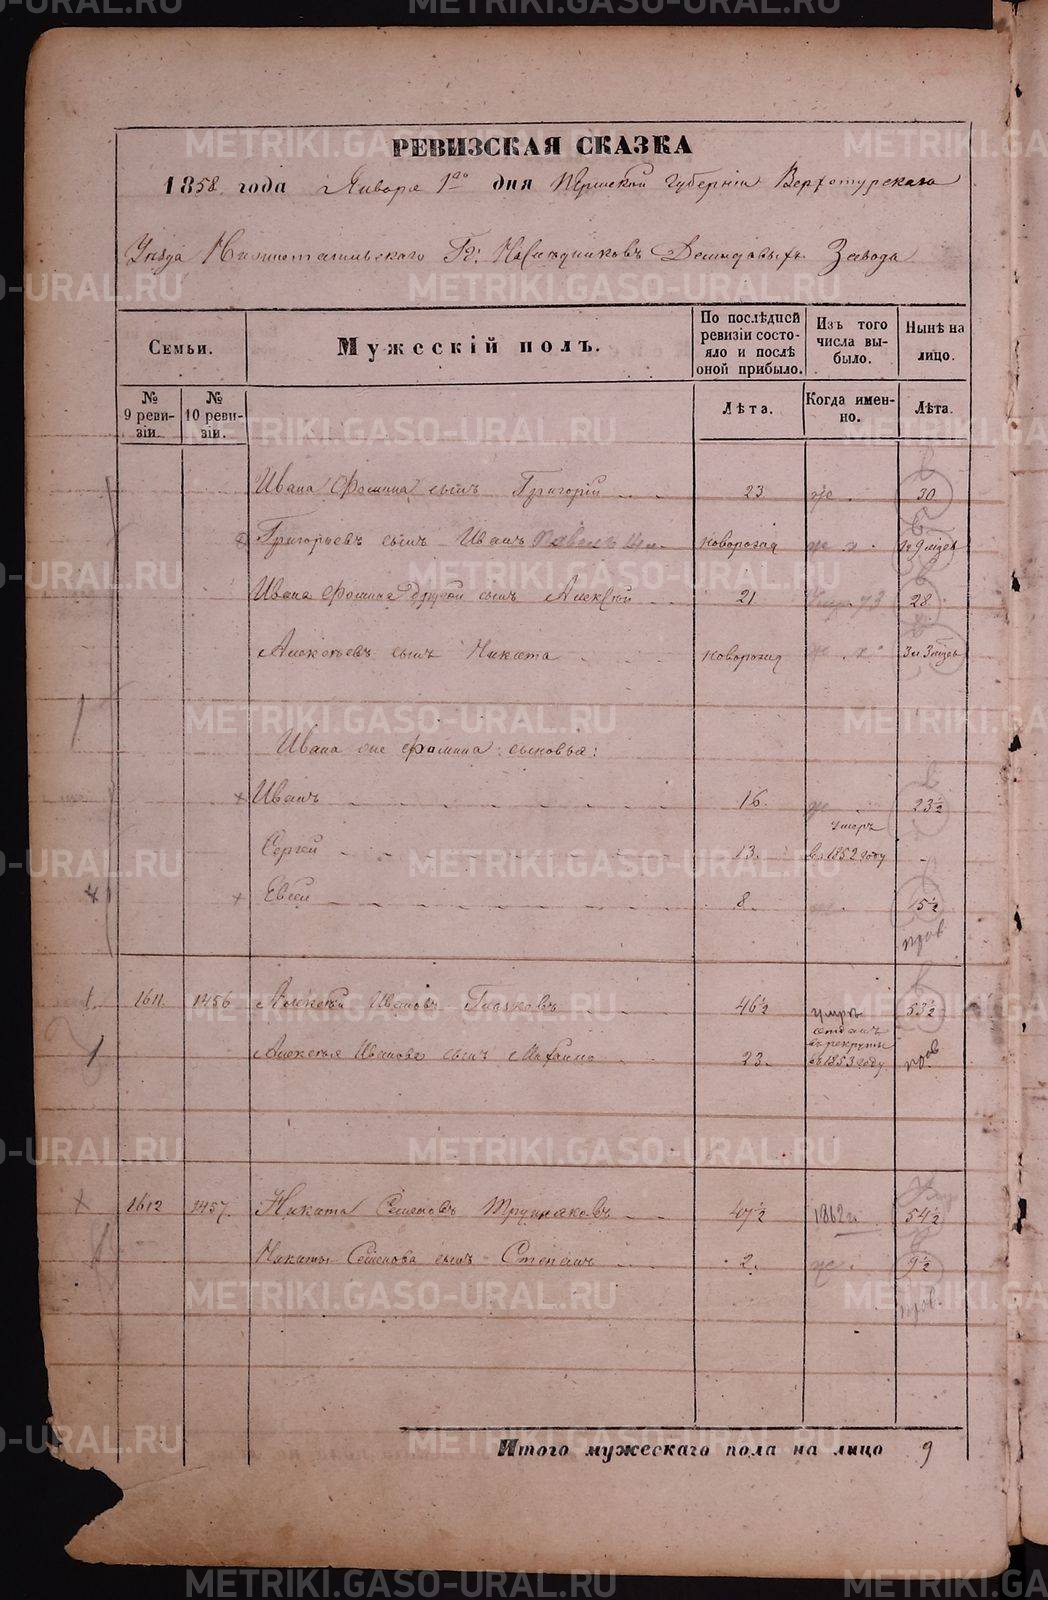 РЕВИЗСКАЯ СКАЗКА
1858 года Января 1го дня Пермской Губерніи Верхотурскаго
Уезда Нижнетагильскаго Гг. Наследниковъ Демидовыхъ Завода
Семьи.
Мужескій полъ.
По послѣдней ревизіи состояло и послѣ оной прибыло.
Изъ того числа выбыло.
Нынѣ на лицо.
№ 9 ревизіи.
№ 10 ревизіи.
Лѣта.
Когда именно.
Лѣта.
Ивана Фомина сынъ Григорій 23 30
Григорьевъ сынъ Иванъ новорожд
Ивана Фомина другой сынъ Алексей 21 28
Алексеевъ сынъ Никита новорожд
Ивана Фомина сыновья:
Иванъ 16. 23½
Сергей 13. умеръ въ 1852 году
Евсей 8. 15½
пров
1611 1456 Алексей Ивановъ 46½ умеръ 53½
Алексея Иванова сынъ 23. отданъ въ рекруты въ 1853 году пров
1612 1457. Никита Семеновъ 47½ 1862 54½
Никиты Семенова сынъ Степанъ 2. 9½
пров.
Итого мужескаго пола на лицо 9
METRIKI.GASO-URAL.RU